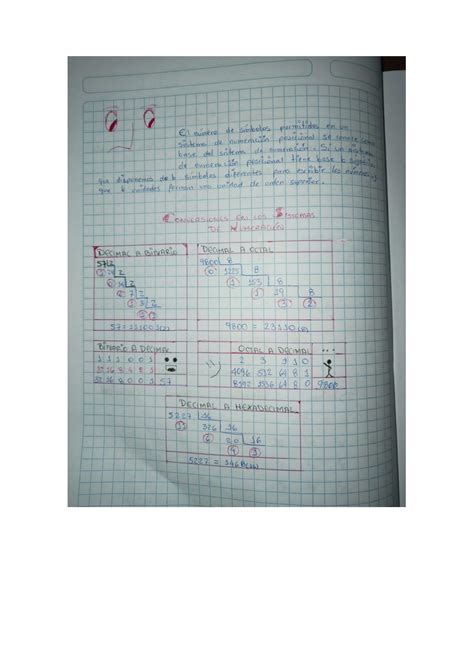 El número de símbolos permitidos en un
sistema de numeración posicional se conoce como
base del sistema de numeración. Si un sistema
de numeración posicional tiene base b significa
que disponemos de b símbolos diferentes para escribir los números y
que b unidades forman una unidad de orden superior.
CONVERSIONES EN LOS SISTEMAS
DE NUMERACIÓN
DECIMAL A BINARIO
57 2
28 2
14 2
7 2
3 2
57 = 111001(2)
DECIMAL A OCTAL
9800 8
0 1225 8
1 153 8
1 19 8
3 2
9800 = 23110(8)
BINARIO A DECIMAL
1 1 1 0 0 1
32 16 8 4 2 1
32 16 8 0 0 1 57
OCTAL A DECIMAL
2 3 1 1 0
4096 512 64 8 1
8192 1536 64 8 0 9800
DECIMAL A HEXADECIMAL
5227 16
326 16
6 20 16
4
5227 = 146B(16)